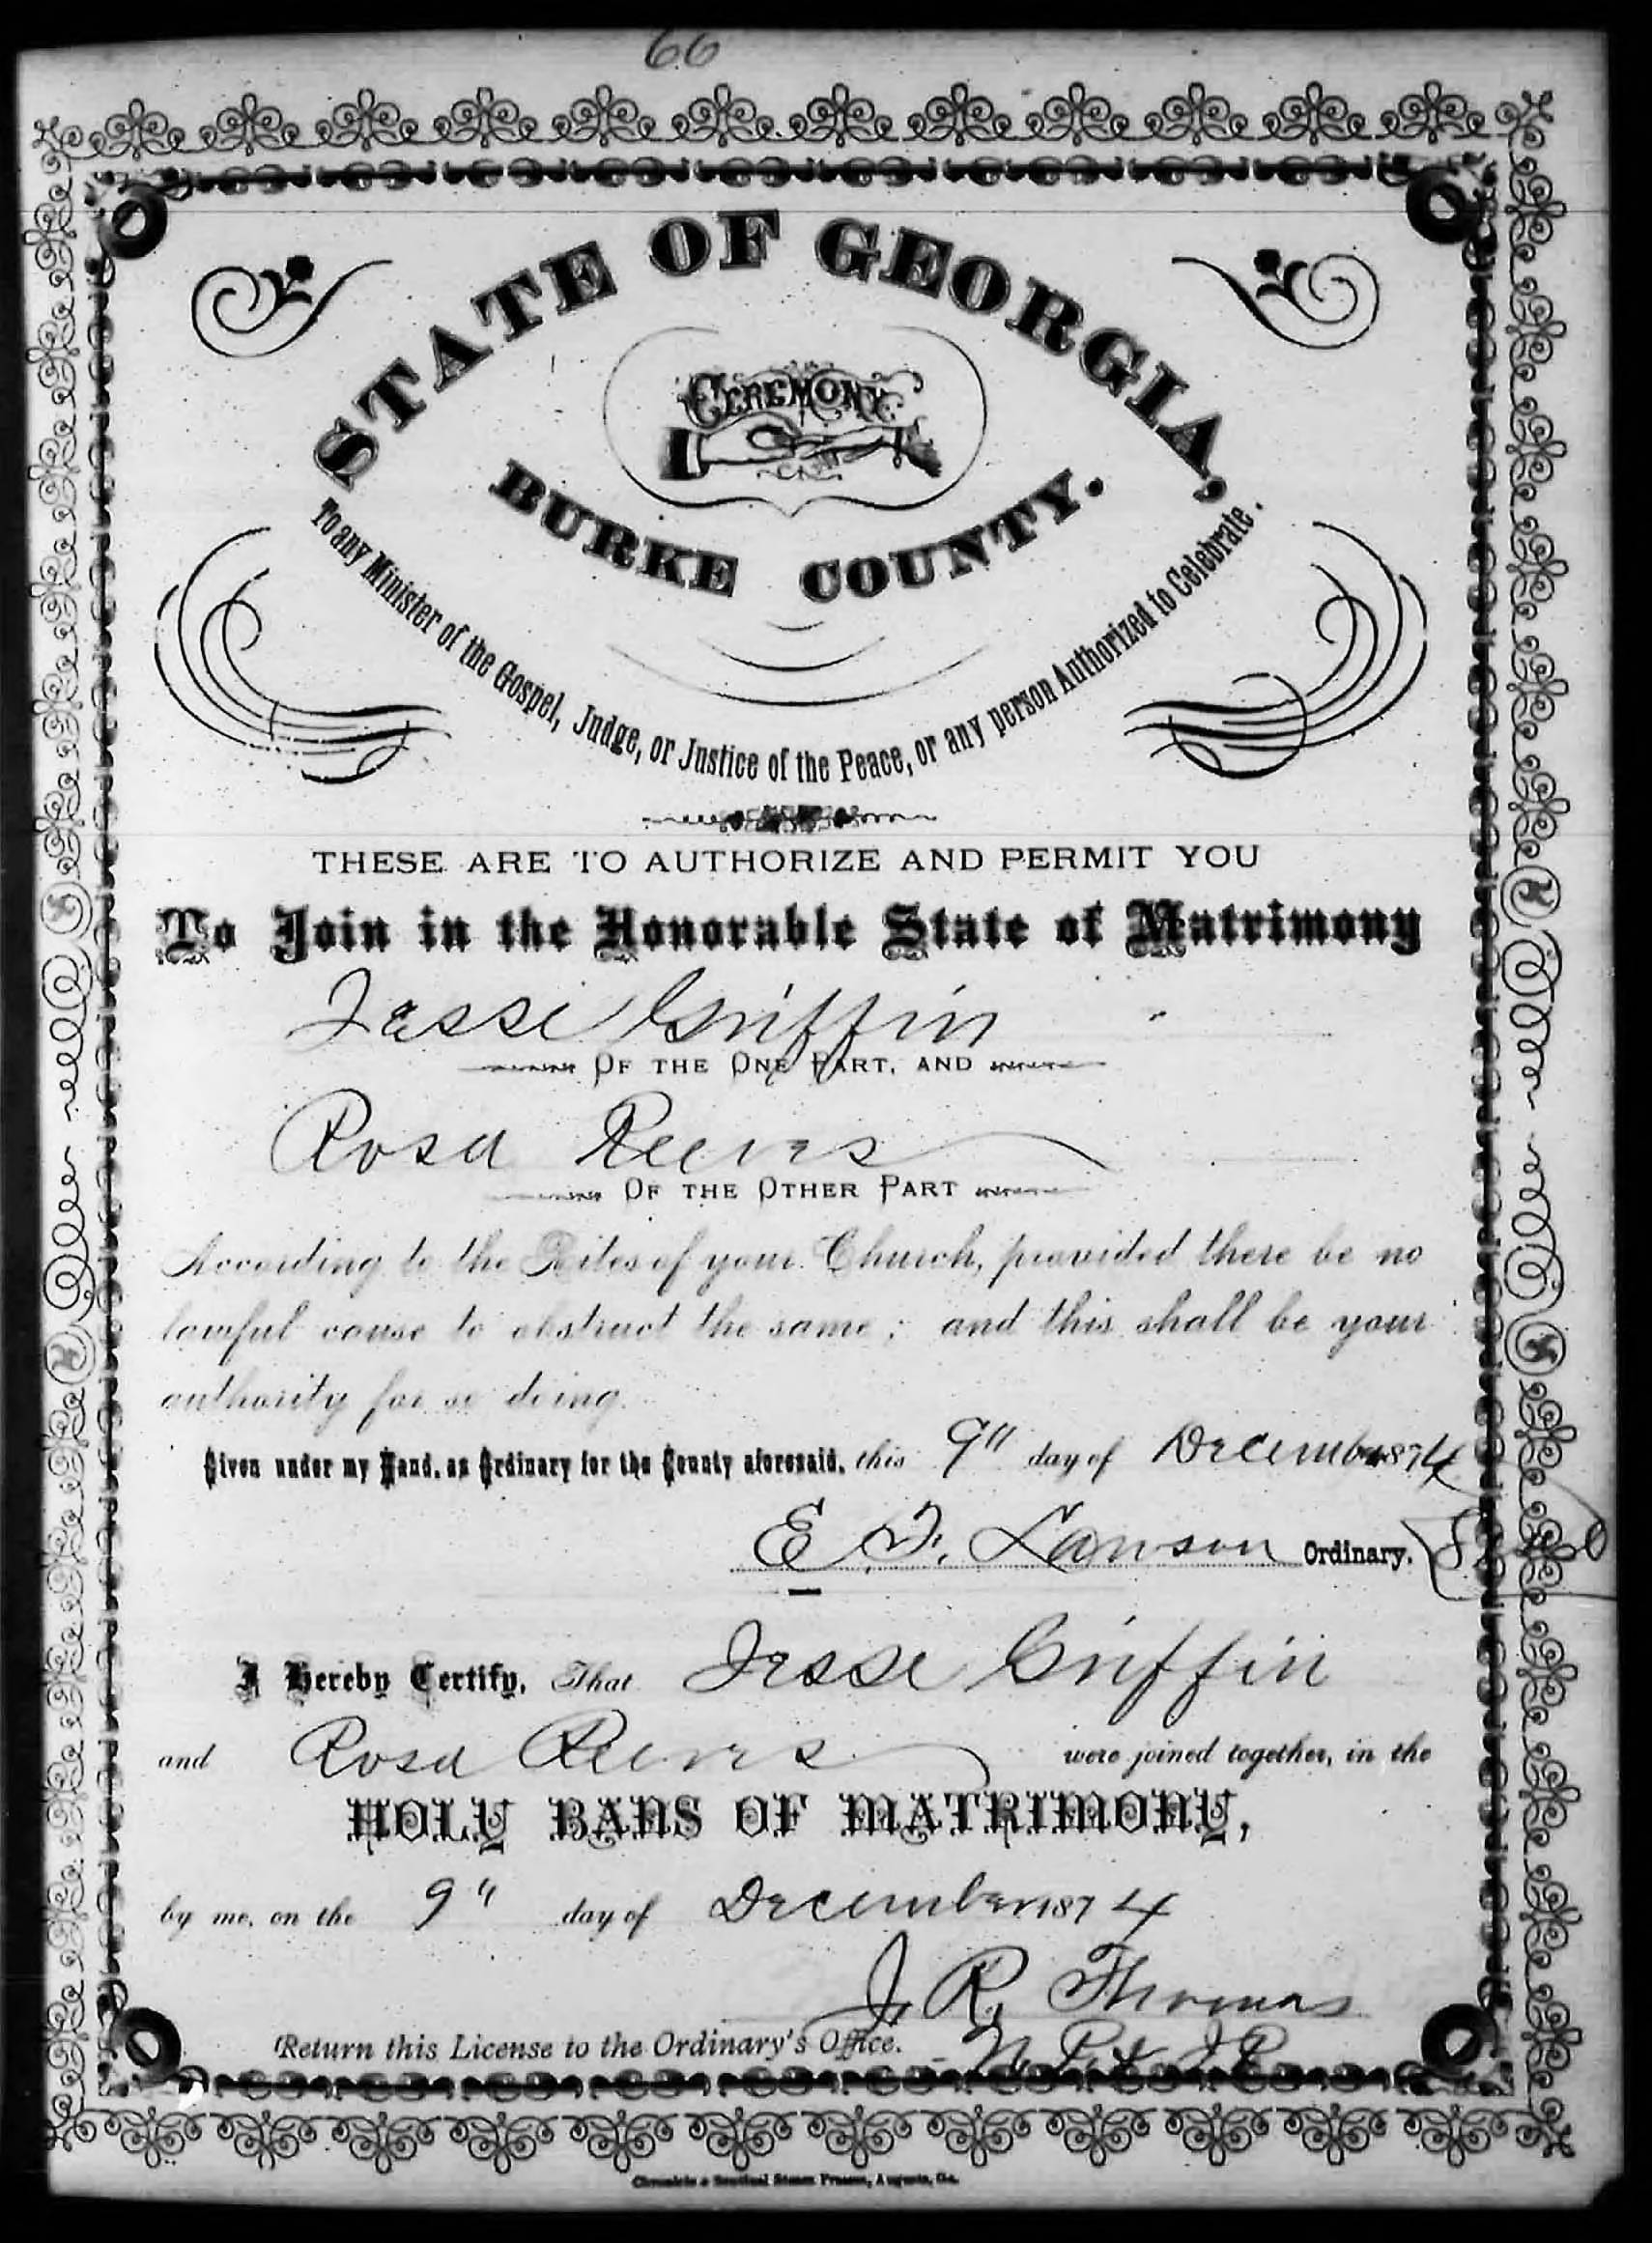 66
STATE OF GEORGIA,
CEREMONY
BURKE COUNTY.
To any Minister of the Gospel, Judge, or Justice of the Peace, or any person Authorized to Celebrate.
THESE ARE TO AUTHORIZE AND PERMIT YOU
To Join in the Honorable State of Matrimony
Jesse Griffin
OF THE ONE PART, AND
Rosa Reeves
OF THE OTHER PART
According to the Rites of your Church, provided there be no
lawful cause to obstruct the same; and this shall be your
authority for so doing.
Given under my Hand, as Ordinary for the County aforesaid, this 9" day of December 1874
E F. Lawson Ordinary. Seal
I Hereby Certify, That Jesse Griffin
and Rosa Reeves were joined together, in the
HOLY BANS OF MATRIMONY,
by me, on the 9" day of December 1874
J. R. Thomas
Return this License to the Ordinary's Office. N. P. & J P
Chronicle & Sentinel Steam Presses, Augusta, Ga.